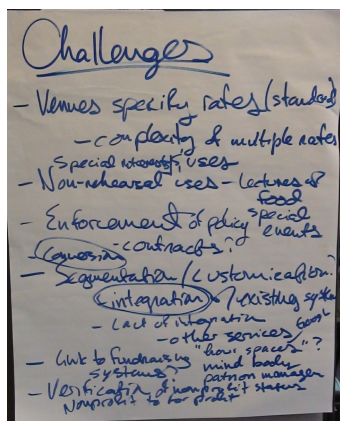 Challenges
- Venues specify rates/standard
- complexity of multiple rates
special interests, uses
- Non-rehearsal uses - lectures of
food
- Enforcement of policy special
events
- contracts?
Conversion
- Segmentation / Customization?
integration w/ existing system
- Lack of integration
- other services Google
"hour spaces"?
- Link to fundraising
systems? mind body
patron manager
- Verification of nonprofit status
Nonprofit to for profit